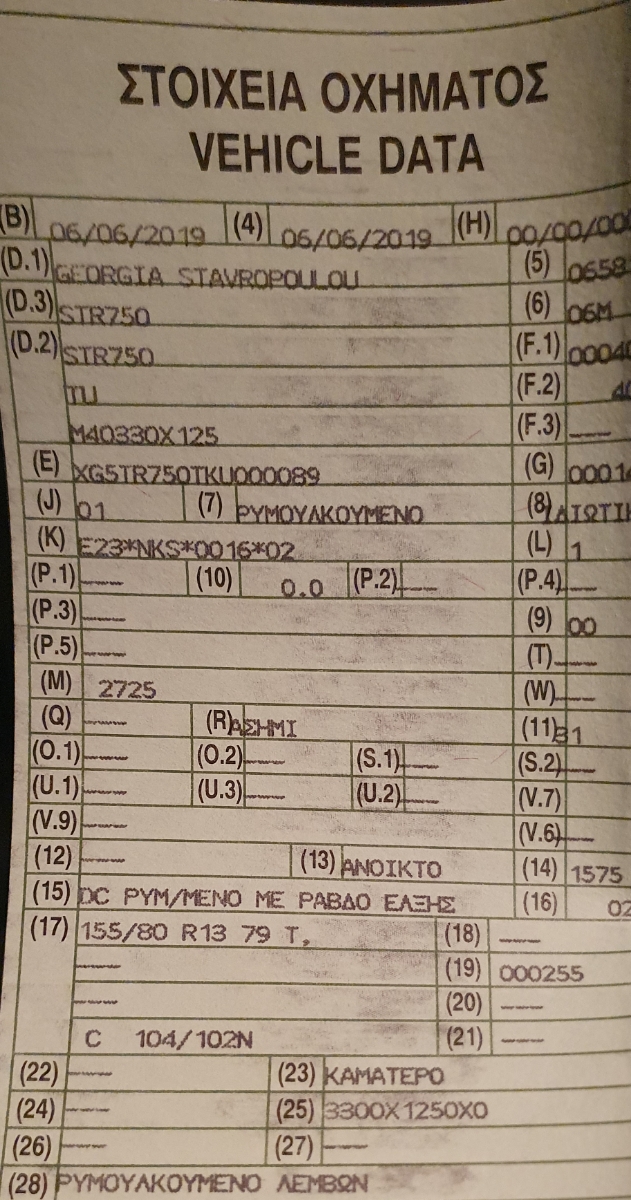 ΣΤΟΙΧΕΙΑ ΟΧΗΜΑΤΟΣ
VEHICLE DATA
(B) 06/06/2019 (4) 06/06/2019 (H) 00/00/00
(D.1) GEORGIA STAVROPOULOU (5) 0658
(D.3) STR750 (6) 06M
(D.2) STR750 (F.1) 00040
TU (F.2)
M40330X125 (F.3) ---
(E) XG5TR750TKU000089 (G) 0001
(J) 01 (7) ΡΥΜΟΥΛΚΟΥΜΕΝΟ (8)
(K) E23*NKS*0016*02 (L) 1
(P.1) --- (10) 0.0 (P.2) --- (P.4) ---
(P.3) --- (9) 00
(P.5) --- (T) ---
(M) 2725 (W) ---
(Q) --- (R) ΑΣΗΜΙ (11) 81
(O.1) --- (O.2) --- (S.1) --- (S.2) ---
(U.1) --- (U.3) --- (U.2) --- (V.7)
(V.9) --- (V.6) ---
(12) --- (13) ΑΝΟΙΚΤΟ (14) 1575
(15) DC ΡΥΜ/ΜΕΝΟ ΜΕ ΡΑΒΔΟ ΕΛΞΗΣ (16) 02
(17) 155/80 R13 79 T, (18) ---
--- (19) 000255
--- (20) ---
C 104/102N (21) ---
(22) --- (23) ΚΑΜΑΤΕΡΟ
(24) --- (25) 3300X1250X0
(26) --- (27) ---
(28) ΡΥΜΟΥΛΚΟΥΜΕΝΟ ΛΕΜΒΩΝ